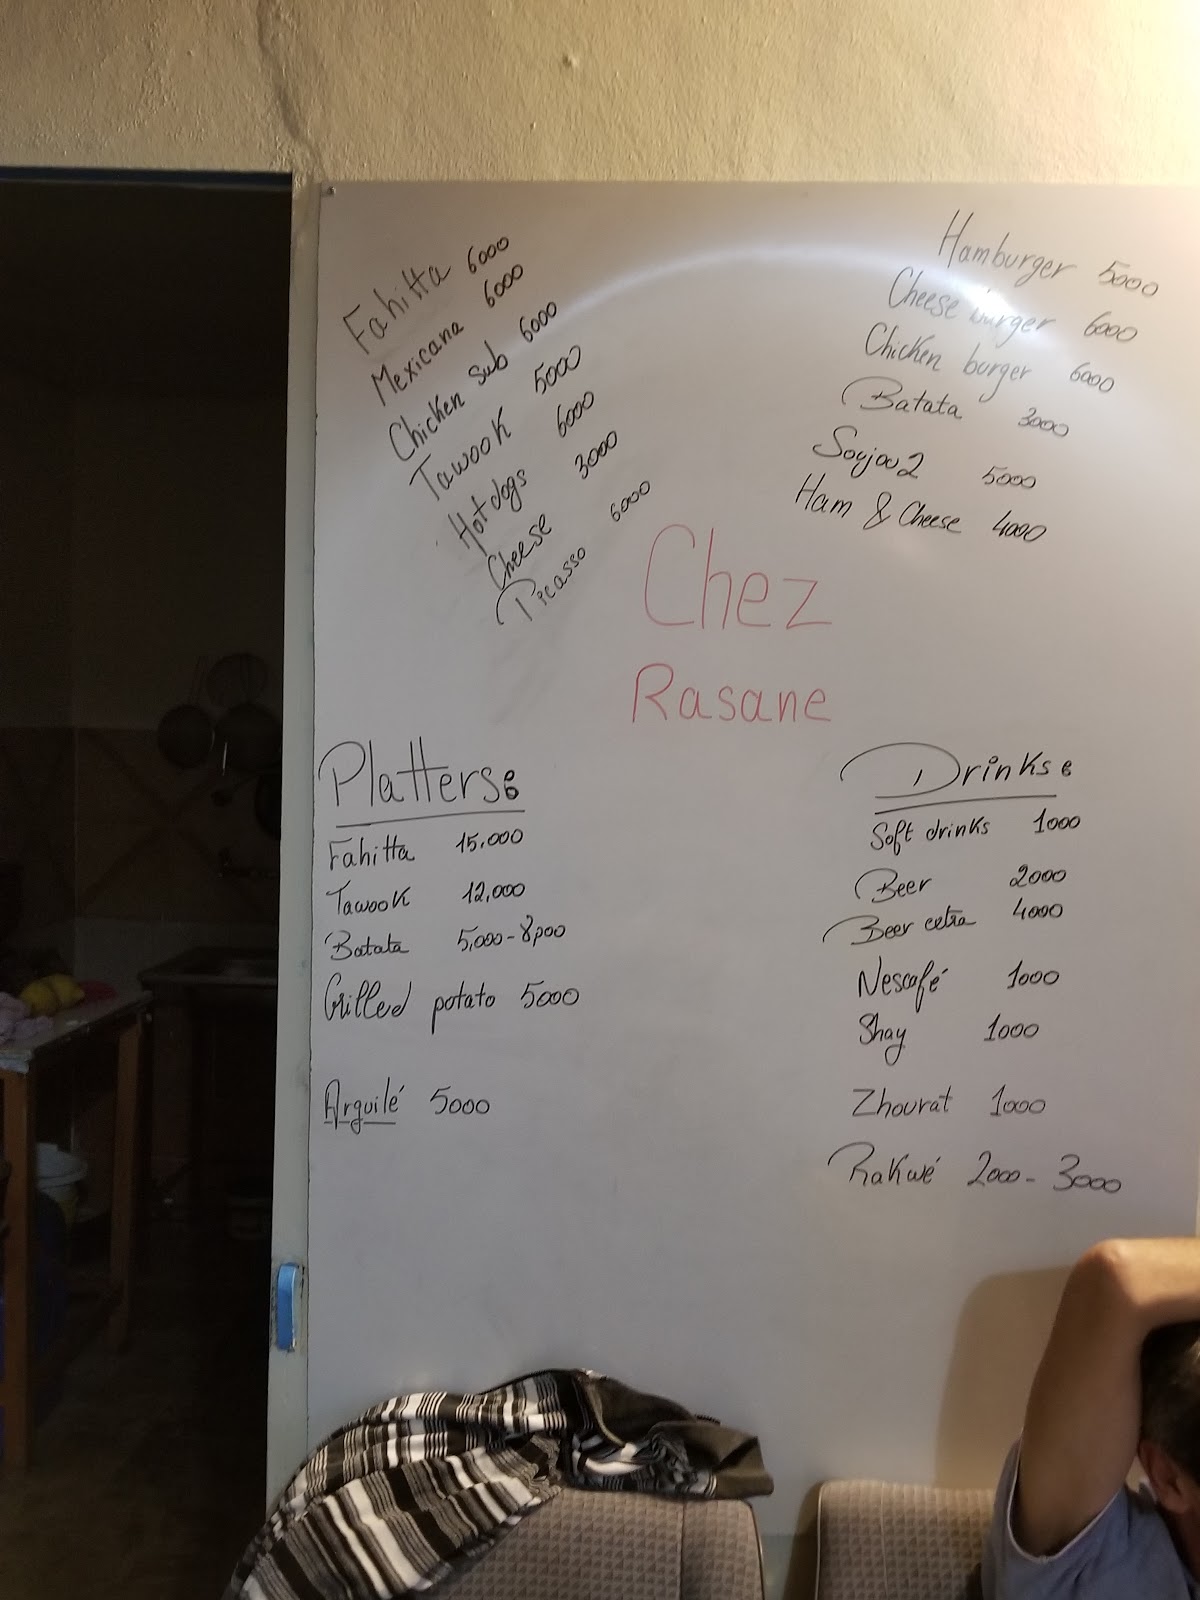 Fahitta 6000
Mexicana 6000
Chicken sub 6000
Tawook 5000
Hot dogs 6000
Cheese 3000
Picasso 6000
Hamburger 5000
Cheese burger 6000
Chicken burger 6000
Batata 3000
Soujou2 5000
Ham & Cheese 4000
Chez
Rasane
Platters:
Fahitta 15,000
Tawook 12,000
Batata 5,000-8,000
Grilled potato 5000
Arguilé 5000
Drinks:
Soft drinks 1000
Beer 2000
Beer extra 4000
Nescafé 1000
Shay 1000
Zhourat 1000
Rakwé 2000-3000